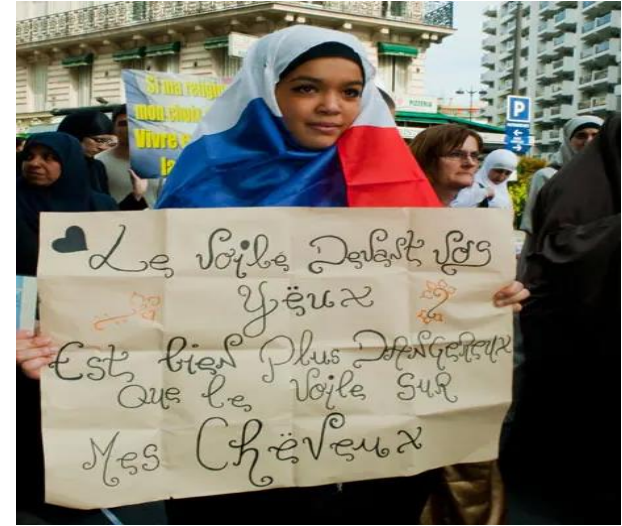 Si ma religion
mon choix
Vivre
la
PIZZERIA
P
Le Voile Devant Vos
Yëux
Est bien Plus DANGEReux
Que le Voile SuR
Mes Chëveux